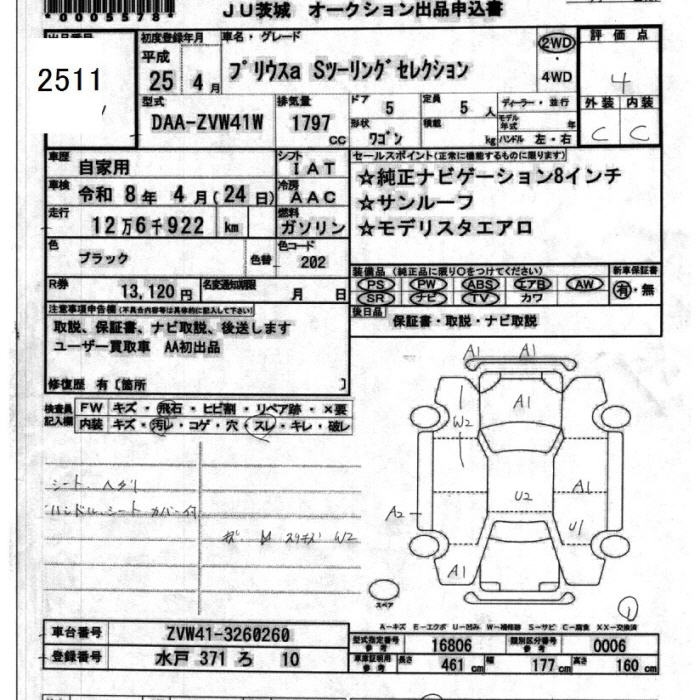 *0005578*
JU茨城 オークション出品申込書
2511
初度登録年月
平成
25 4 月
車名・グレード
プリウスa Sツーリングセレクション
2WD
・
4WD
評価点
4
外装 内装
C C
型式
DAA-ZVW41W
排気量
1797
cc
ドア 5
定員 5 人
形状 ワゴン
積載 kg
ディーラー・並行
モデル年式 年
ハンドル 左・右
車歴
自家用
シフト
IAT
車検 令和 8年 4月(24日)
冷房
AAC
走行
12万6千922 km
燃料
ガソリン
セールスポイント(正常に機能するものに限ります)
☆純正ナビゲーション8インチ
☆サンルーフ
☆モデリスタエアロ
色
ブラック
色替
色コード
202
装備品(純正品に限り○をつけてください)
PS PW ABS エアB AW
SR ナビ TV カワ
新車保証書
有・無
R券
13,120円
名変通知期限
月 日
後日品
保証書・取説・ナビ取説
注意事項申告欄(不具合内容等は具体的に記入して下さい)
取説、保証書、ナビ取説、後送します
ユーザー買取車 AA初出品
修復歴 有〔箇所 〕
検査員記入欄
FW キズ・飛石・ヒビ割・リペア跡・×要
内装 キズ・汚レ・コゲ・穴・スレ・キレ・破レ
シート、ヘタリ
ハンドル、シートカバー付
W2
A1 A1
A1
W2
U2
A1
A2
U1
A1
スペア
1
A-キズ E-エクボ U-凹み W-補修跡 S-サビ C-腐食 XX-交換済
車台番号 ZVW41-3260260
登録番号 水戸 371 ろ 10
型式指定番号 参考 16806
類別区分番号 参考 0006
車庫証明用 参考 長さ 461 cm 幅 177 cm 高さ 160 cm